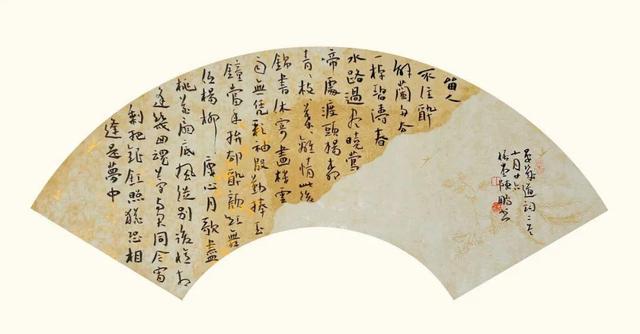 留人
不住醉
解蘭舟去
一棹碧濤春
水路過盡曉鶯
啼處渡頭楊柳青
青枝枝葉葉離情此後
錦書休寄畫樓雲
雨無憑彩袖殷勤捧玉
鍾當年拚却醉顏紅舞
低楊柳樓心月歌盡
桃花扇底風從別後憶相
逢幾回魂夢與君同今宵
剩把銀釭照猶恐相
逢是夢中
晏幾道詞二首
十月